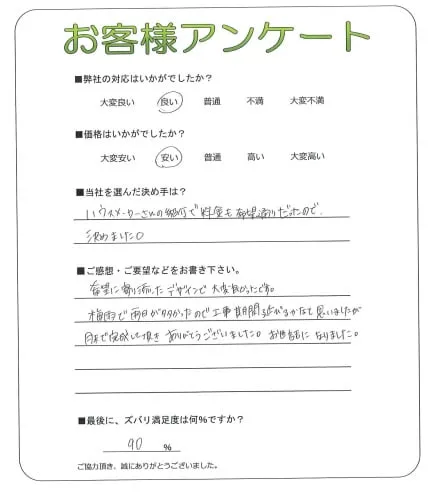 お客様アンケート
■弊社の対応はいかがでしたか？
大変良い 良い 普通 不満 大変不満
■価格はいかがでしたか？
大変安い 安い 普通 高い 大変高い
■当社を選んだ決め手は？
ハウスメーカーさんの紹介で料金も希望通りだったので、
決めました。
■ご感想・ご要望などをお書き下さい。
希望に寄り添ったデザインで大変良かったです。
梅雨で雨日が多かったので工事期間 かなと思いましたが
で完成して頂きありがとうございました。お世話になりました。
■最後に、ズバリ満足度は何%ですか？
90 %
ご協力頂き、誠にありがとうございました。